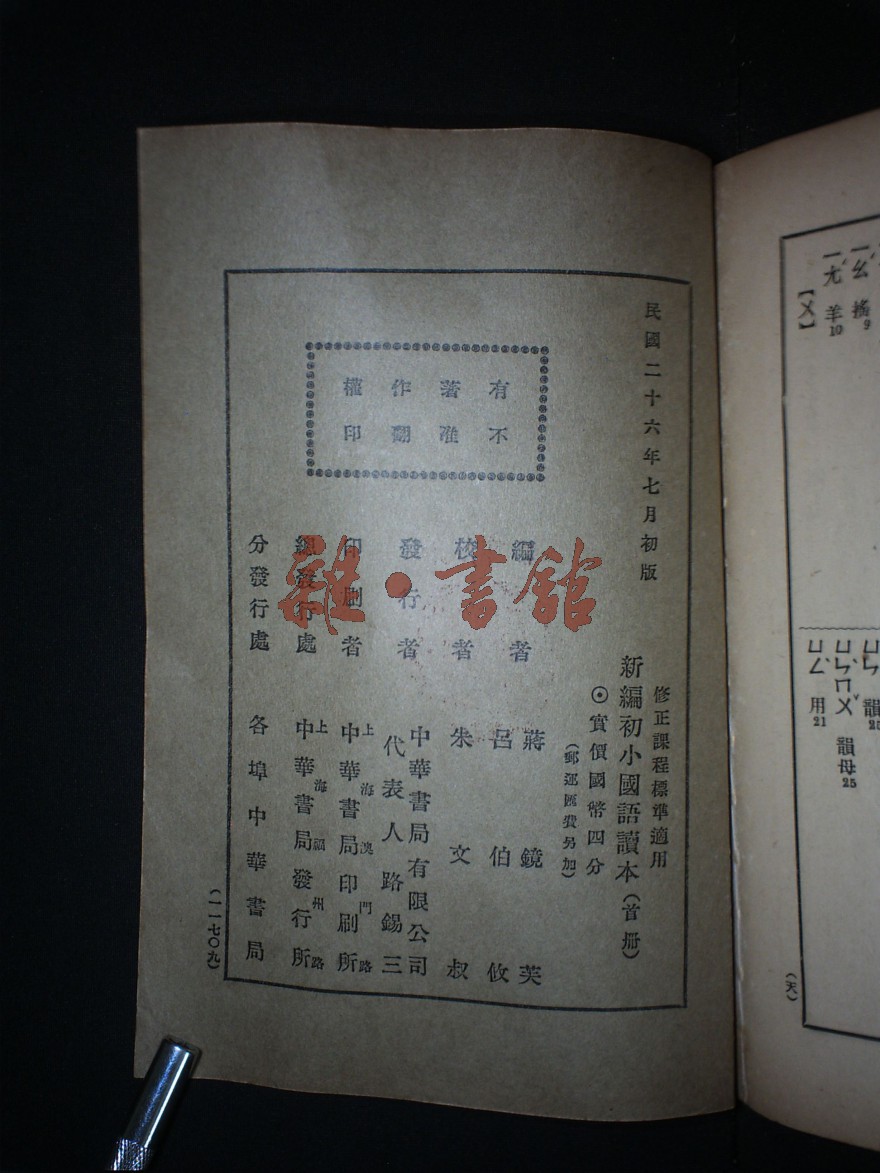 民國二十六年七月初版
有著作權
不准翻印
修正課程標準適用
新編初小國語讀本(首册)
⊙實價國幣四分
(郵運匯費另加)
編者 蔣鏡芙
呂伯攸
校者 朱文叔
發行者 中華書局有限公司
代表人路錫三
印刷者 上海澳門路
中華書局印刷所
總發行處 上海福州路
中華書局發行所
分發行處 各埠中華書局
(一一七〇九)
雜·書館
ㄧㄠˊ 搖9
ㄧㄤˊ 羊10
【ㄨ】
ㄩㄣˋ 韻25
ㄩㄣˋㄇㄨˇ 韻母25
ㄩㄥˋ 用21
(天)